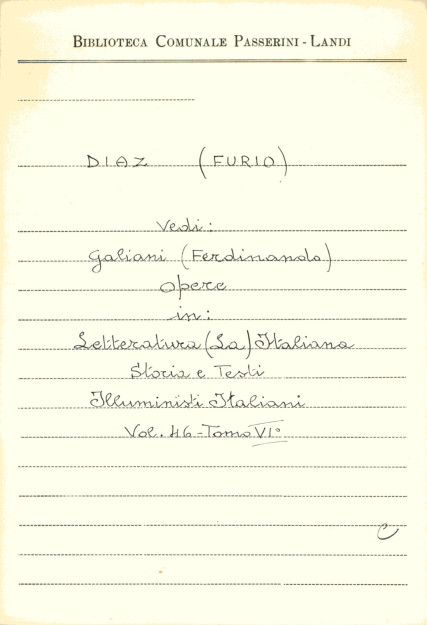 BIBLIOTECA COMUNALE PASSERINI - LANDI
DIAZ (FURIO)
Vedi:
Galiani (Ferdinando)
Opere
in:
Letteratura (La) Italiana
Storia e Testi
Illuministi Italiani
Vol. 46 - Tomo VI°
C